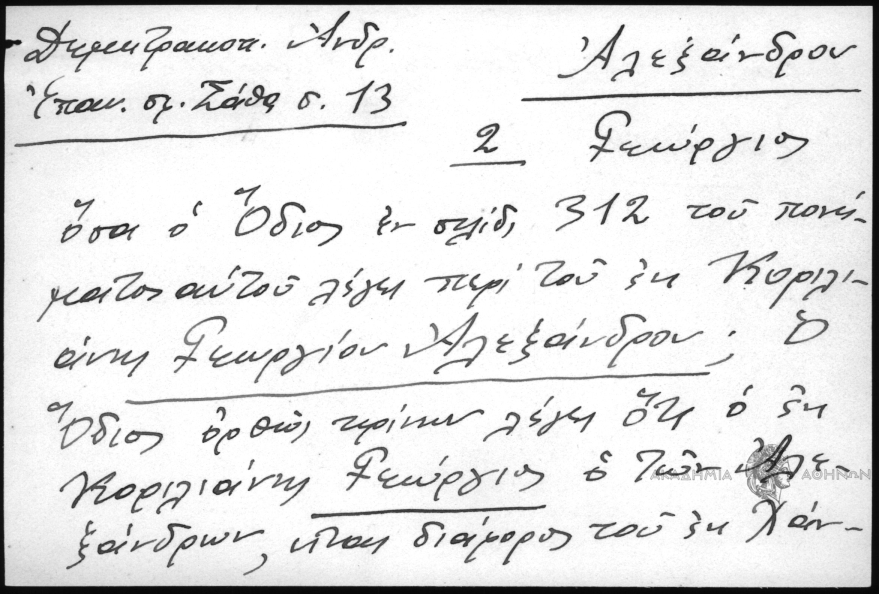 Δημητρακοπ. Ἀνδρ.
Ἐπαν. σφ. Σάθα σ. 13
Ἀλεξάνδρου
2 Γεώργιος
ὅσα ὁ Ἴδιος ἐν σελίδι 312 τοῦ πονή-
ματος αὐτοῦ λέγει περὶ τοῦ ἐκ Κοριλι-
άνης Γεωργίου Ἀλεξάνδρου; Ὁ
Ἴδιος ὀρθῶς κρίνων λέγει ὅτι ὁ ἐκ
Κοριλιάνης Γεώργιος ὁ τῶν Ἀλε-
ξάνδρων, εἶναι διάφορος τοῦ ἐκ Χάν-
ΑΚΑΔΗΜΙΑ ΑΘΗΝΩΝ